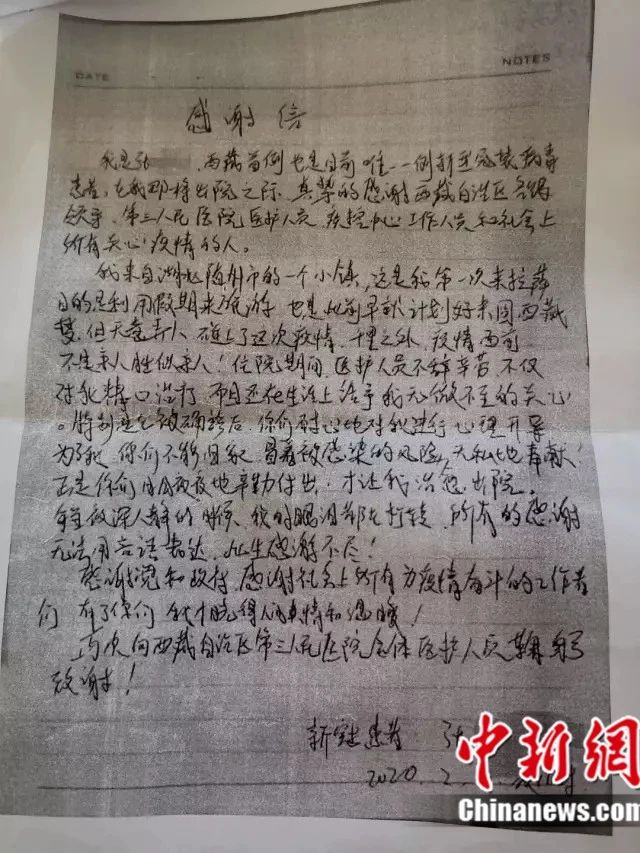 DATE
NOTES
感谢信
我是张 西藏首例也是目前唯一一例新型冠状病毒
患者。在我即将出院之际,真挚的感谢西藏自治区各级
领导、第三人民医院医护人员、疾控中心工作人员和社会上
所有关心疫情的人。
我来自湖北随州市的一个小镇,这是我第一次来拉萨
目的是利用假期来旅游,也是此前早就计划好来圆西藏
梦,但天意弄人,碰上了这次疫情,千里之外,疫情面前
不是亲人胜似亲人!住院期间,医护人员不辞辛苦,不仅
对我精心治疗,而且还在生活上给予我无微不至的关心
。特别是在被确诊后,你们耐心地对我进行心理开导
为了我,你们不能回家,冒着被感染的风险,无私地奉献!
正是你们日日夜夜地辛勤付出,才让我治愈出院。
每至夜深人静的时候,我的眼泪都在打转,所有的感谢
无法用言语表达,此生感谢不尽!
感谢党和政府,感谢社会上所有为疫情奋斗的工作者
们,有了你们,我才觉得人间真情和温暖!
再次向西藏自治区第三人民医院全体医护人员鞠躬
致谢!
新冠患者 张
2020.2.
中新网
Chinanews.com